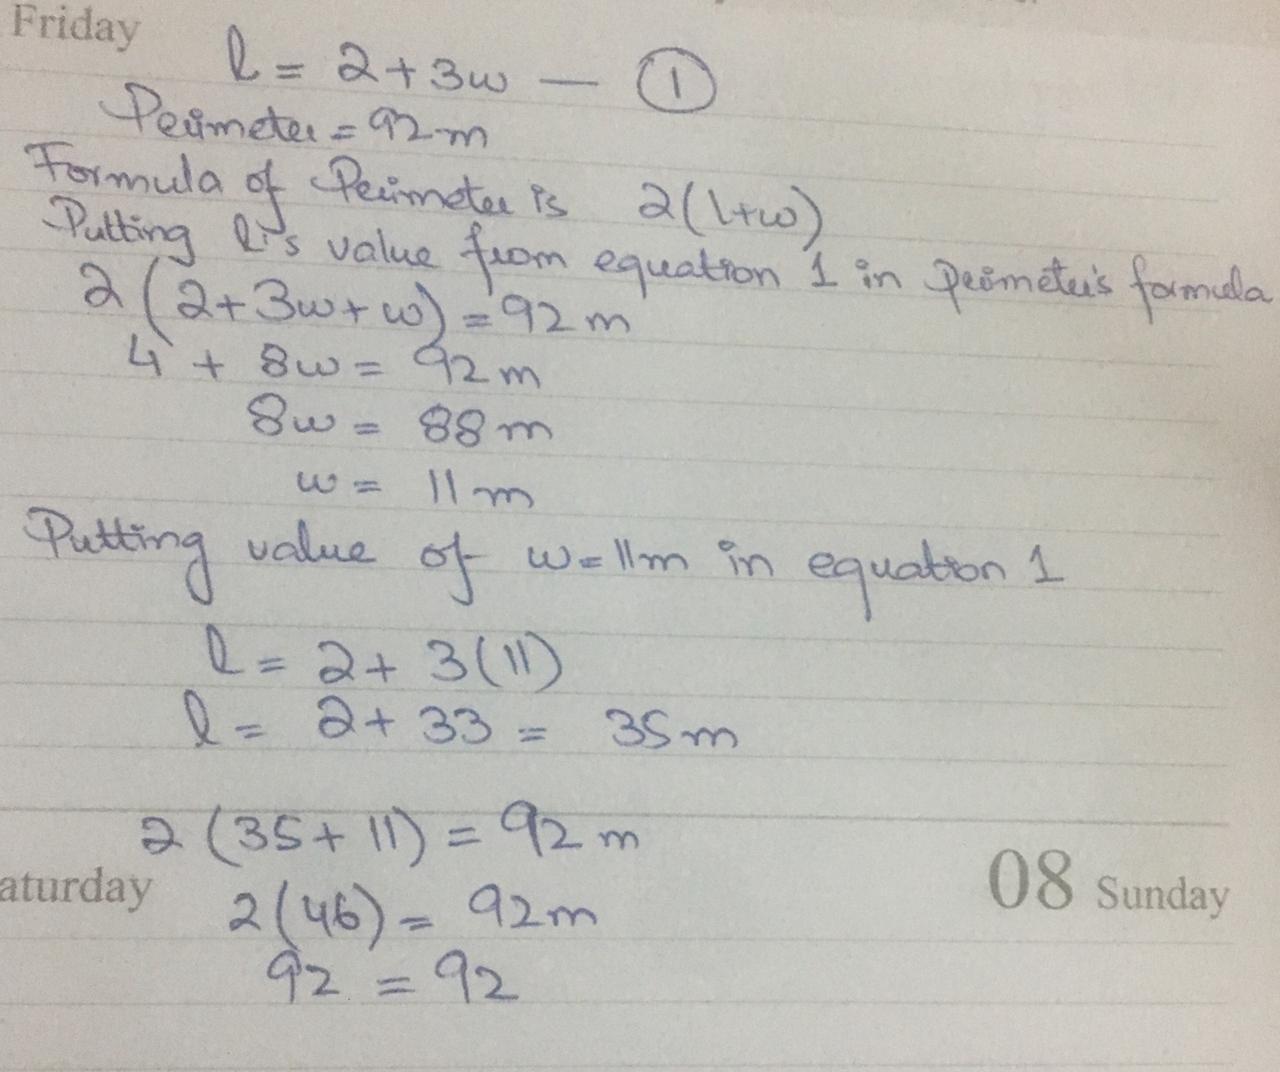 Friday
l = 2 + 3w — ①
Perimeter = 92 m
Formula of Perimeter is 2(l+w)
Putting l's value from equation 1 in Perimeter's formula
2(2+3w+w) = 92 m
4 + 8w = 92 m
8w = 88 m
w = 11 m
Putting value of w = 11m in equation 1
l = 2 + 3(11)
l = 2 + 33 = 35 m
2(35+11) = 92 m
aturday
08 Sunday
2(46) = 92m
92 = 92